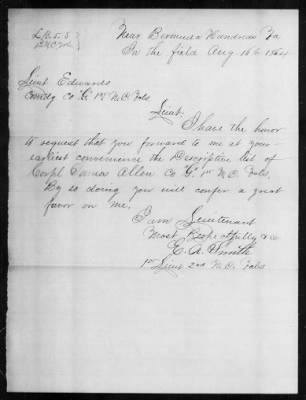 Near Bermuda Hundred Va
In the field Aug 16th 1864
Lieut Edwards
Comdg Co "G" 1st N.C. Vols.
Lieut.
I have the honor
to request that you forward to me at your
earliest convenience the Descriptive list of
Corpl James Allen Co "G" 1st N.C. Vols.
By so doing you will confer a great
favor on me.
I am Lieutenant
Most Respectfully &c
E. A. Smith
1st Lieut 2nd N.C. Vols